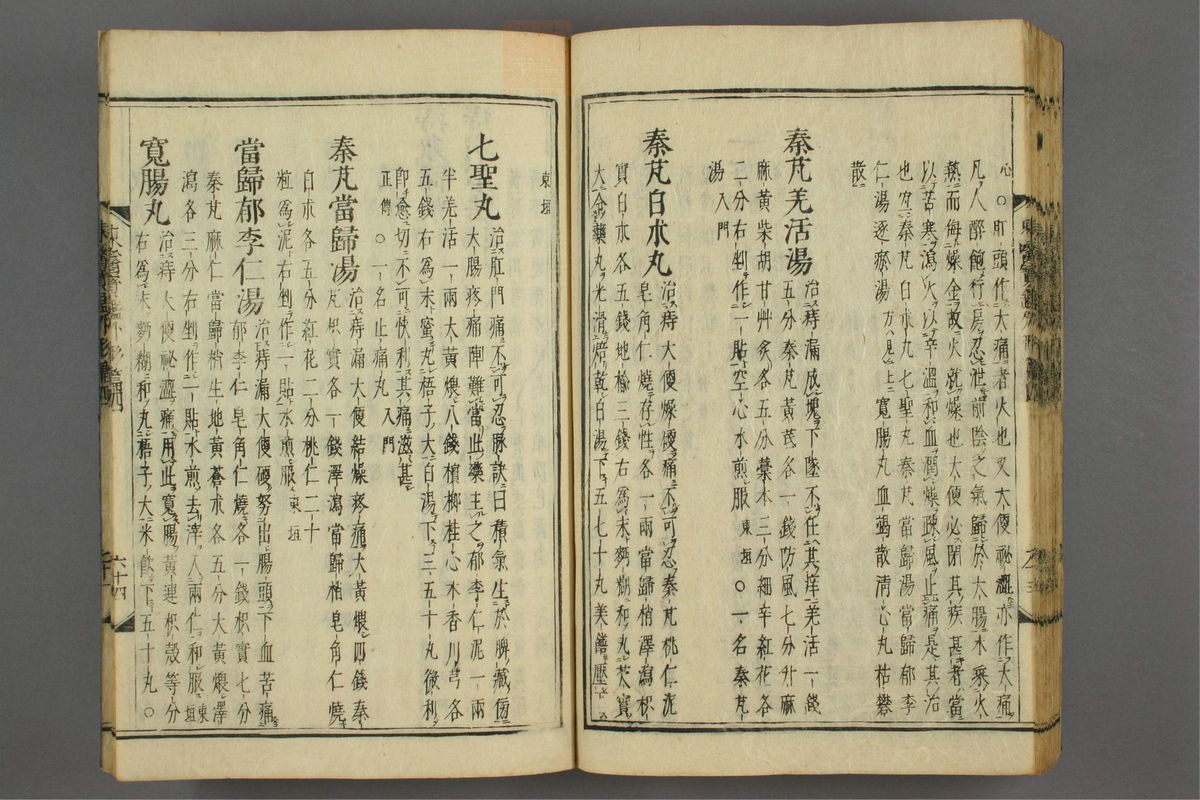 心○肛頭作大痛者火也又大便祕澁亦作大痛
凡人醉飽行房忍泄前陰之氣歸於大腸木乘火
熱而侮燥金故火就燥也大便必閉其疾甚者當
以苦寒瀉火以辛溫和血潤燥踈風止痛是其治
也宜秦艽白朮丸七聖丸秦艽當歸湯當歸郁李
仁湯逐瘀湯方見上寛腸丸血竭散淸心丸枯礬
散
秦艽羌活湯治痔漏成塊下墜不任其痒羌活一錢
五分秦艽黃芪各一錢防風七分升麻
麻黃柴胡甘艸炙各五分藁本三分細辛紅花各
二分右剉作一貼空心水煎服東垣○一名秦艽
湯入門
秦艽白朮丸治痔大便燥硬痛不可忍秦艽桃仁泥
皂角仁燒存性各一兩當歸梢澤瀉枳
實白朮各五錢地楡三錢右爲末麪糊和丸芡實
大令藥丸光滑焙乾白湯下五七十丸美饍壓下
東垣
七聖丸治肛門痛不可忍脉訣曰積氣生於脾藏傍
大腸疼痛陣難當此藥主之郁李仁泥一兩
半羌活一兩大黃煨八錢檳榔桂心木香川芎各
五錢右爲末蜜丸梧子大白湯下三五十丸微利
卽愈切不可快利其痛滋甚
正傳○一名止痛丸入門
秦艽當歸湯治痔漏大便結燥疼痛大黃煨四錢秦
艽枳實各一錢澤瀉當歸梢皂角仁燒
白朮各五分紅花二分桃仁二十
粒爲泥右剉作一貼水煎服東垣
當歸郁李仁湯治痔漏大便硬努出腸頭下血苦痛
郁李仁皂角仁燒各一錢枳實七分
秦艽麻仁當歸梢生地黃蒼朮各五分大黃煨澤
瀉各三分右剉作一貼水煎去滓入兩仁和服東垣
寛腸丸治痔大便祕澁痛用此寛腸黃連枳殼等分
右爲末麪糊和丸梧子大米飮下五十丸○
六十四